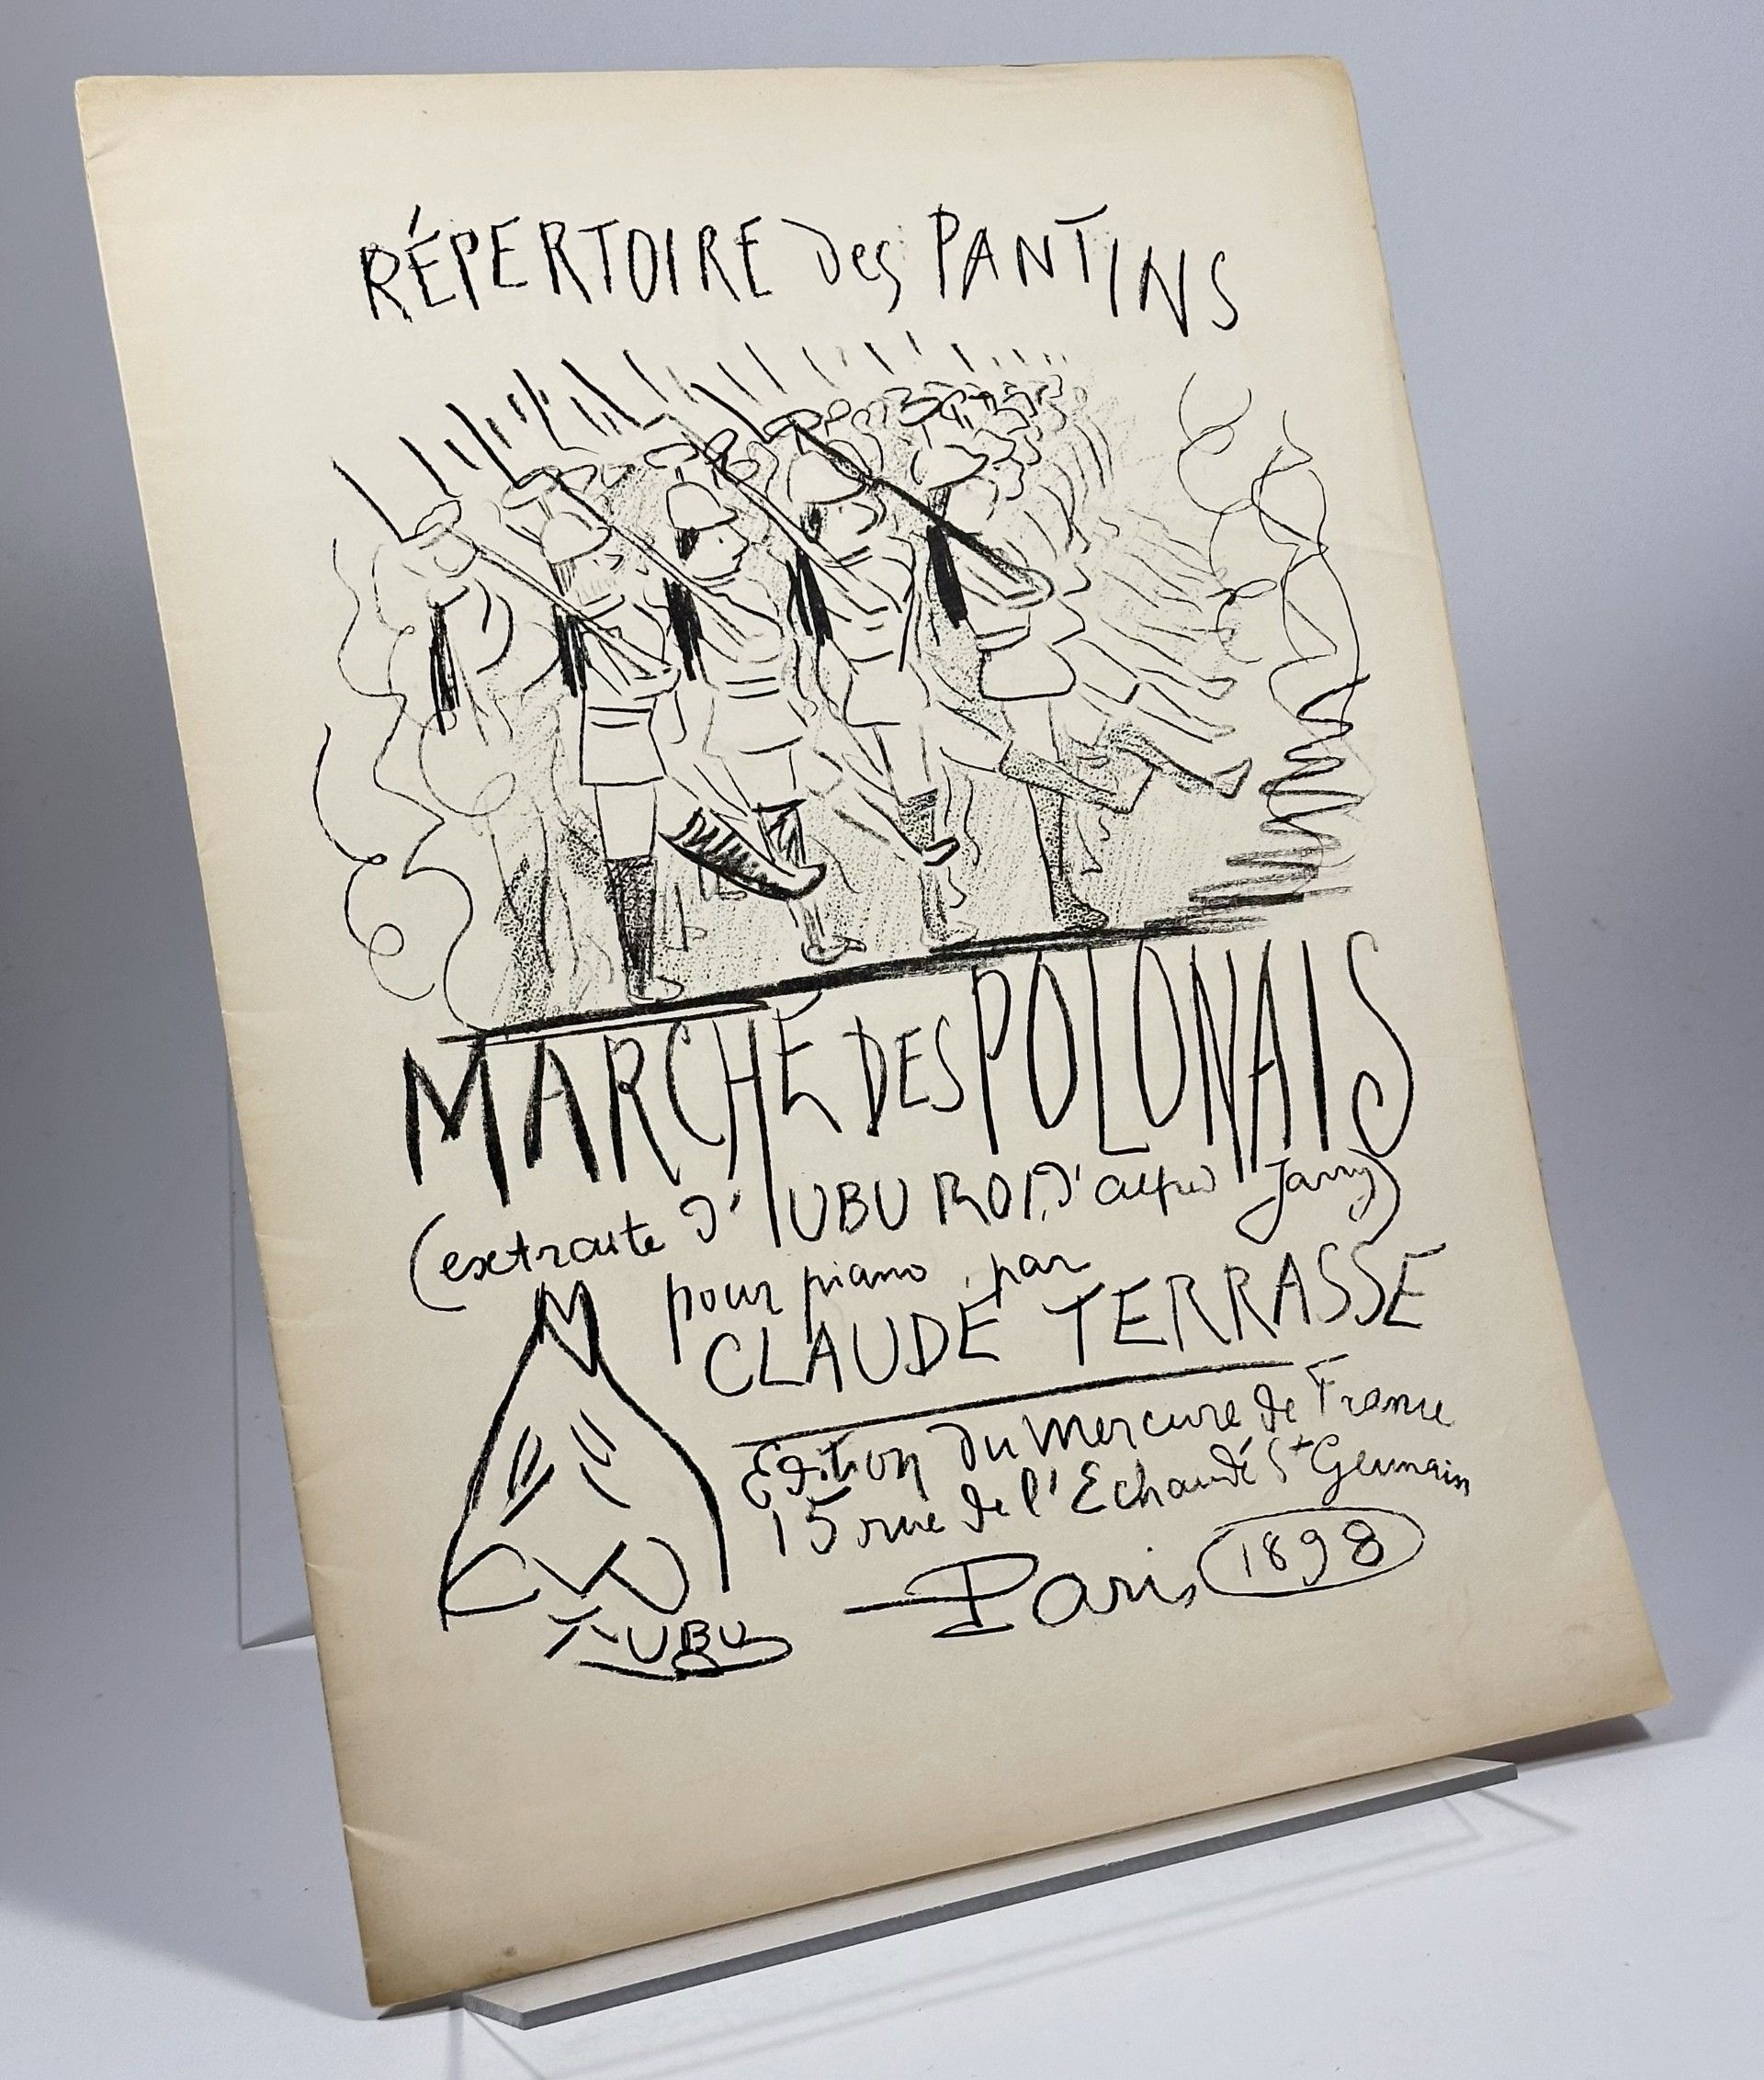 RÉPERTOIRE des PANTINS
MARCHE DES POLONAIS
(extraite d'UBU ROI, d'alfred Jarry)
pour piano, par
CLAUDE TERRASSE
Edition du Mercure de France
15 rue de l'Echaudé St Germain
Paris 1898
UBU